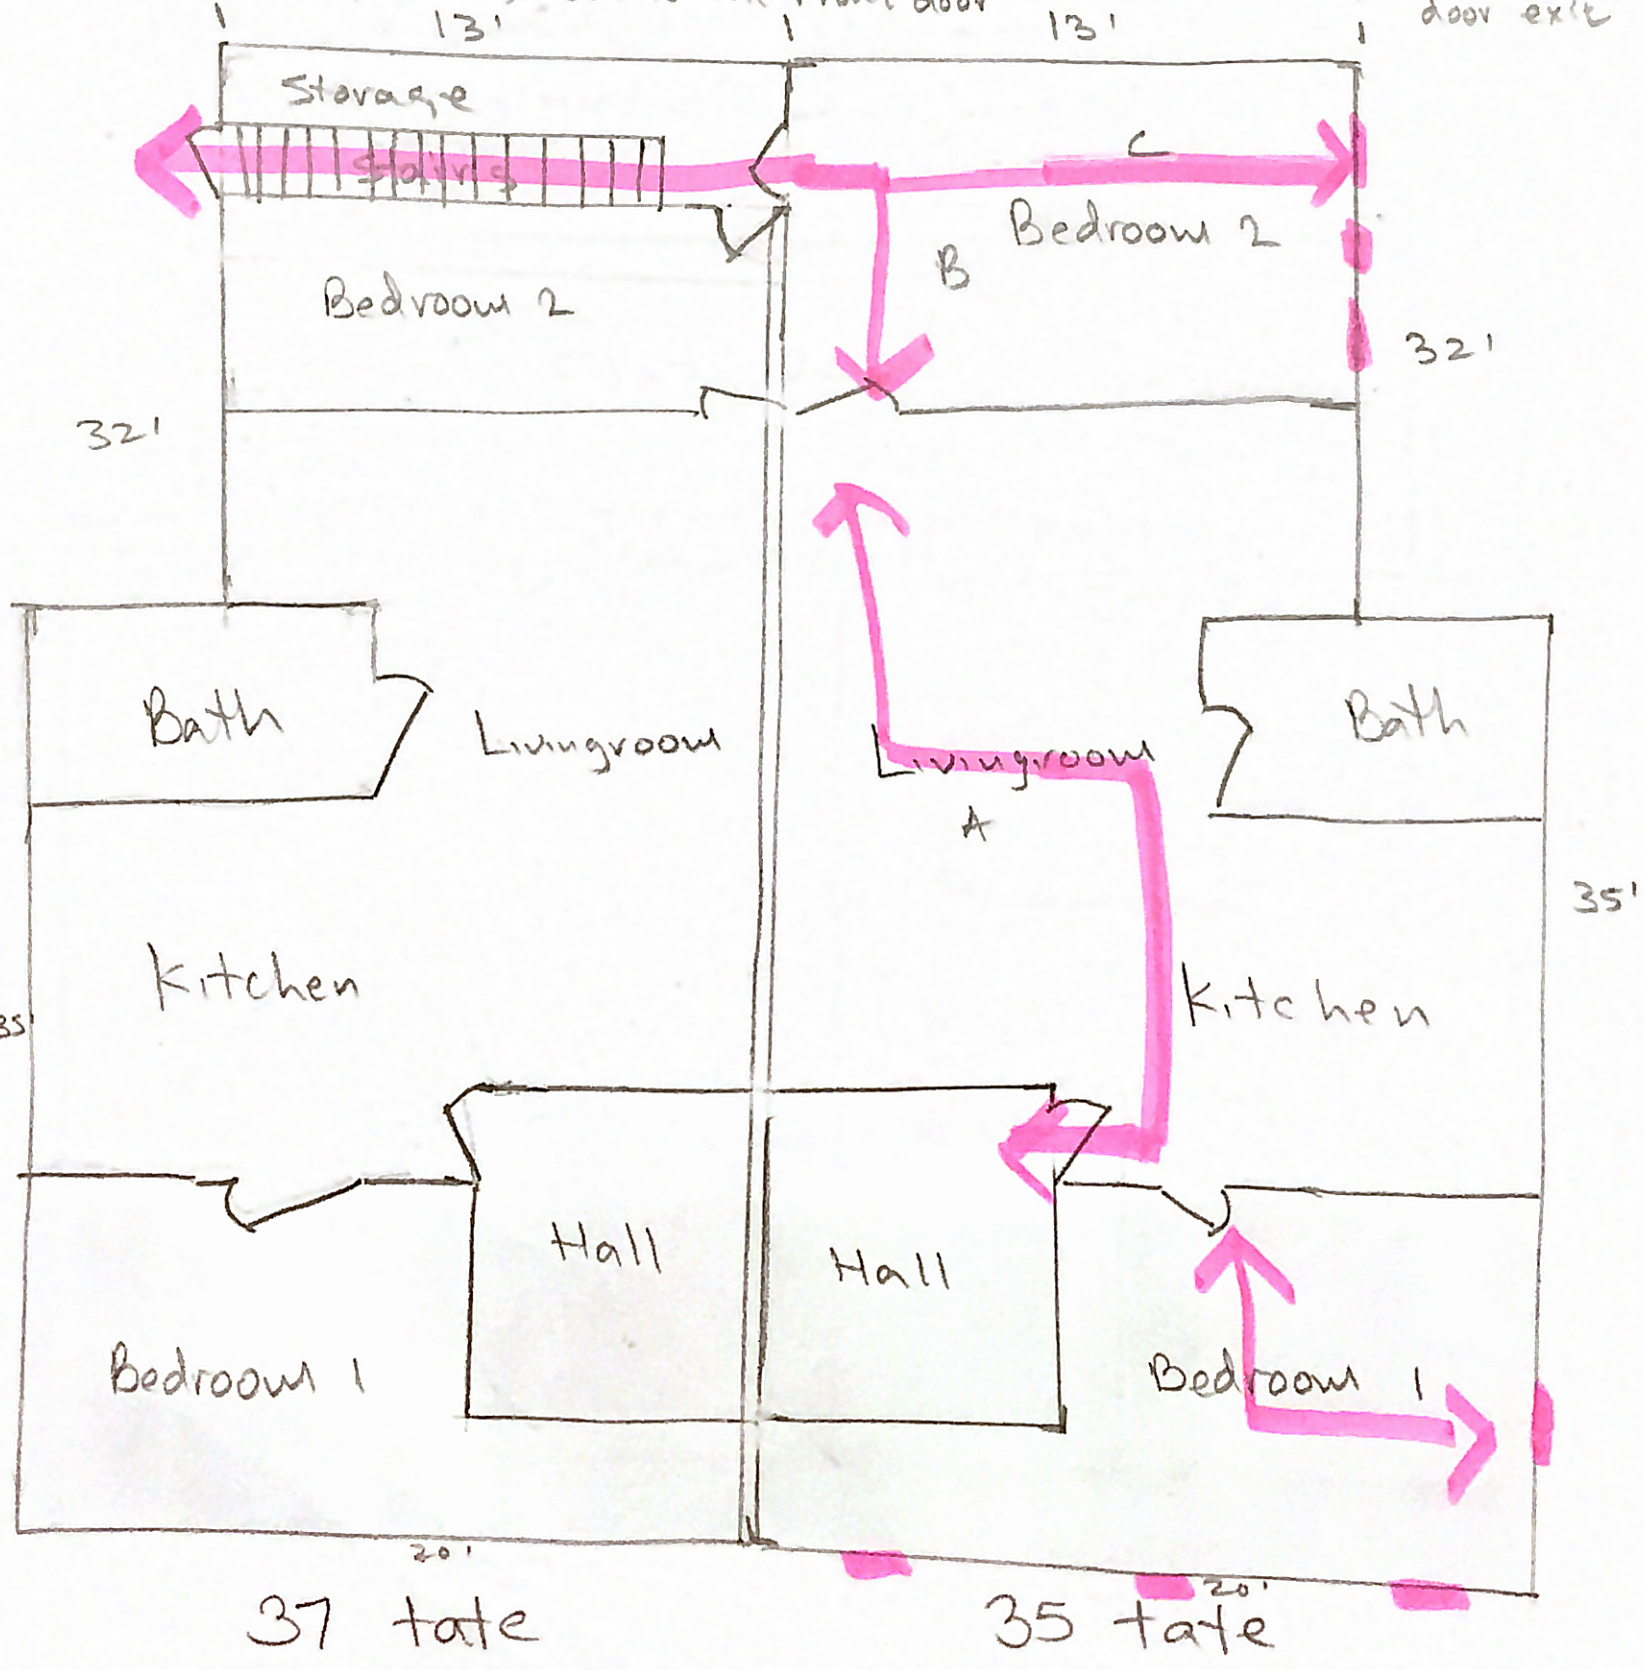 front door
door exit
13'
13'
Storage
Stairs
C
Bedroom 2
B
Bedroom 2
32'
32'
Bath
Livingroom
Livingroom
Bath
A
35'
Kitchen
Kitchen
35
Hall
Hall
Bedroom 1
Bedroom 1
20'
20'
37 tate
35 tate